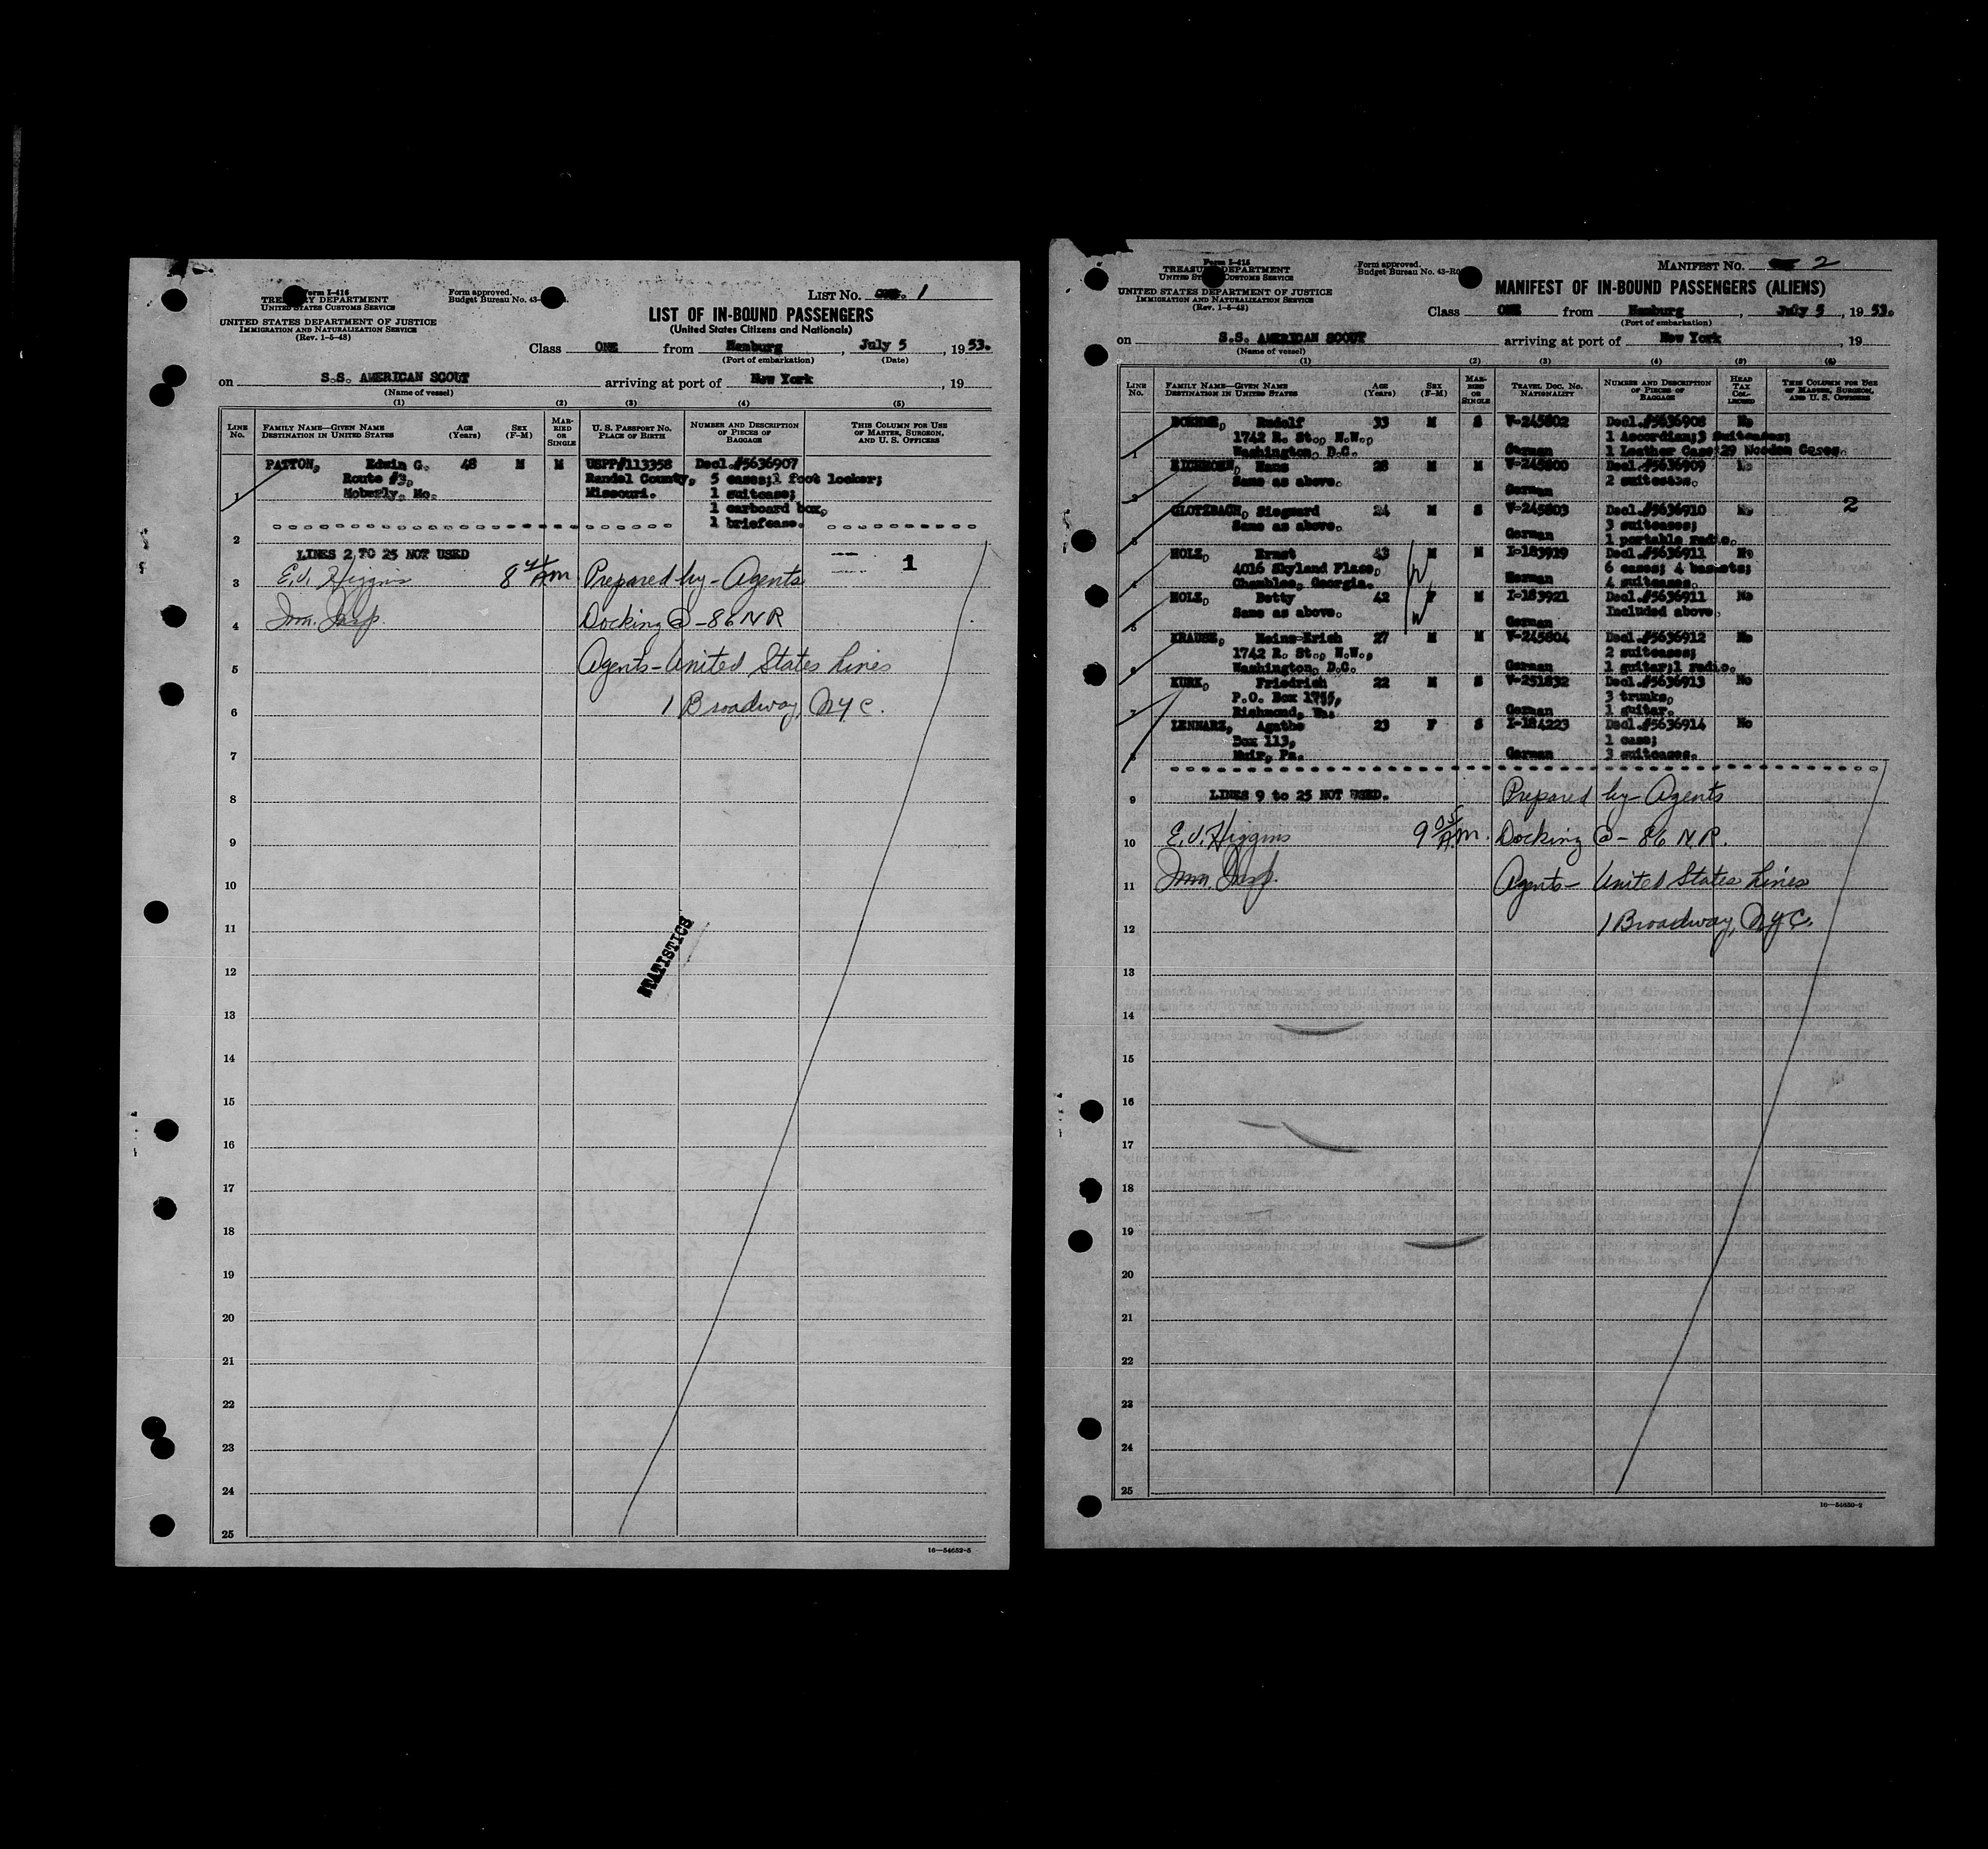 Form I-416
TREASURY DEPARTMENT
UNITED STATES CUSTOMS SERVICE
UNITED STATES DEPARTMENT OF JUSTICE
IMMIGRATION AND NATURALIZATION SERVICE
(Rev. 1-5-48)
Form approved.
Budget Bureau No. 43-
LIST No. 1
LIST OF IN-BOUND PASSENGERS
(United States Citizens and Nationals)
Class ONE from Hamburg, July 5, 1953.
(Port of embarkation) (Date)
on S.S. AMERICAN SCOUT arriving at port of New York, 19
(Name of vessel)
(1) (2) (3) (4) (5)
LINE No. FAMILY NAME—GIVEN NAME DESTINATION IN UNITED STATES AGE (Years) SEX (F-M) MARRIED OR SINGLE U. S. PASSPORT NO. PLACE OF BIRTH NUMBER AND DESCRIPTION OF PIECES OF BAGGAGE THIS COLUMN FOR USE OF MASTER, SURGEON, AND U. S. OFFICERS
PATTON, Edwin G. 48 M M USPP#113358 Decl.#5636907
Route #3, Randel County, 5 cases;1 foot locker;
1 Moberly, Mo. Missouri. 1 suitcase;
1 carboard box,
1 briefcase.
2
LINES 2 TO 25 NOT USED 1
3 E.J. Higgins 8 AM Prepared by - Agents
4 Imm. Insp. Docking @ - 86 NR
5 Agents - United States Lines
6 1 Broadway, NYC.
7
8
9
10
11
STATISTICS
12
13
14
15
16
17
18
19
20
21
22
23
24
25
16—54652-5
Form I-415
TREASURY DEPARTMENT
UNITED STATES CUSTOMS SERVICE
UNITED STATES DEPARTMENT OF JUSTICE
IMMIGRATION AND NATURALIZATION SERVICE
(Rev. 1-5-48)
Form approved.
Budget Bureau No. 43-R0
MANIFEST No. 2
MANIFEST OF IN-BOUND PASSENGERS (ALIENS)
Class ONE from Hamburg, July 5, 1953.
(Port of embarkation)
on S.S. AMERICAN SCOUT arriving at port of New York, 19
(Name of vessel)
(1) (2) (3) (4) (5) (6)
LINE No. FAMILY NAME—GIVEN NAME DESTINATION IN UNITED STATES AGE (Years) SEX (F-M) MARRIED OR SINGLE TRAVEL DOC. NO. NATIONALITY NUMBER AND DESCRIPTION OF PIECES OF BAGGAGE HEAD TAX COLLECTED THIS COLUMN FOR USE OF MASTER, SURGEON, AND U. S. OFFICERS
BOEHME, Rudolf 33 M S V-245802 Decl.#5636908 No
1742 R. St., N.W., 1 Accordian;3 Suitcases;
1 Washington, D.C. German 1 Leather Case;29 Wooden Cases.
Hans 28 M M V-245800 Decl.#5636909 No
Same as above. 2 suitcases.
2 German
GLOTZBACH, Siegward 24 M S V-245803 Decl.#5636910 No 2
Same as above. 3 suitcases;
3 German 1 portable radio.
HOLZ, Ernst 43 M M I-183919 Decl.#5636911 No
4016 Skyland Place, 6 cases; 4 baskets;
4 Chamblee, Georgia. German 4 suitcases.
HOLZ, Betty 42 F M I-183921 Decl.#5636911 No
Same as above. Included above.
5 German
KRAUSE, Heinz-Erich 27 M M V-245804 Decl.#5636912
1742 R. St., N.W., 2 suitcases;
6 Washington, D.C. German 1 guitar;1 radio.
KURK, Friedrich 22 M S V-251832 Decl.#5636913 No
P.O. Box 1755, 3 trunks,
7 Richmond, Va. German 1 guitar.
LENNARZ, Agathe 23 F S I-184223 Decl.#5636914 No
Box 113, 1 case;
8 Muir, Pa. German 3 suitcases.
9 LINES 9 to 25 NOT USED. Prepared by - Agents
10 E.J. Higgins 9 05 AM. Docking @ - 86 N.R.
11 Imm. Insp. Agents - United States Lines
12 1 Broadway, NYC.
13
14
15
16
17
18
19
20
21
22
23
24
25
16—54650-2